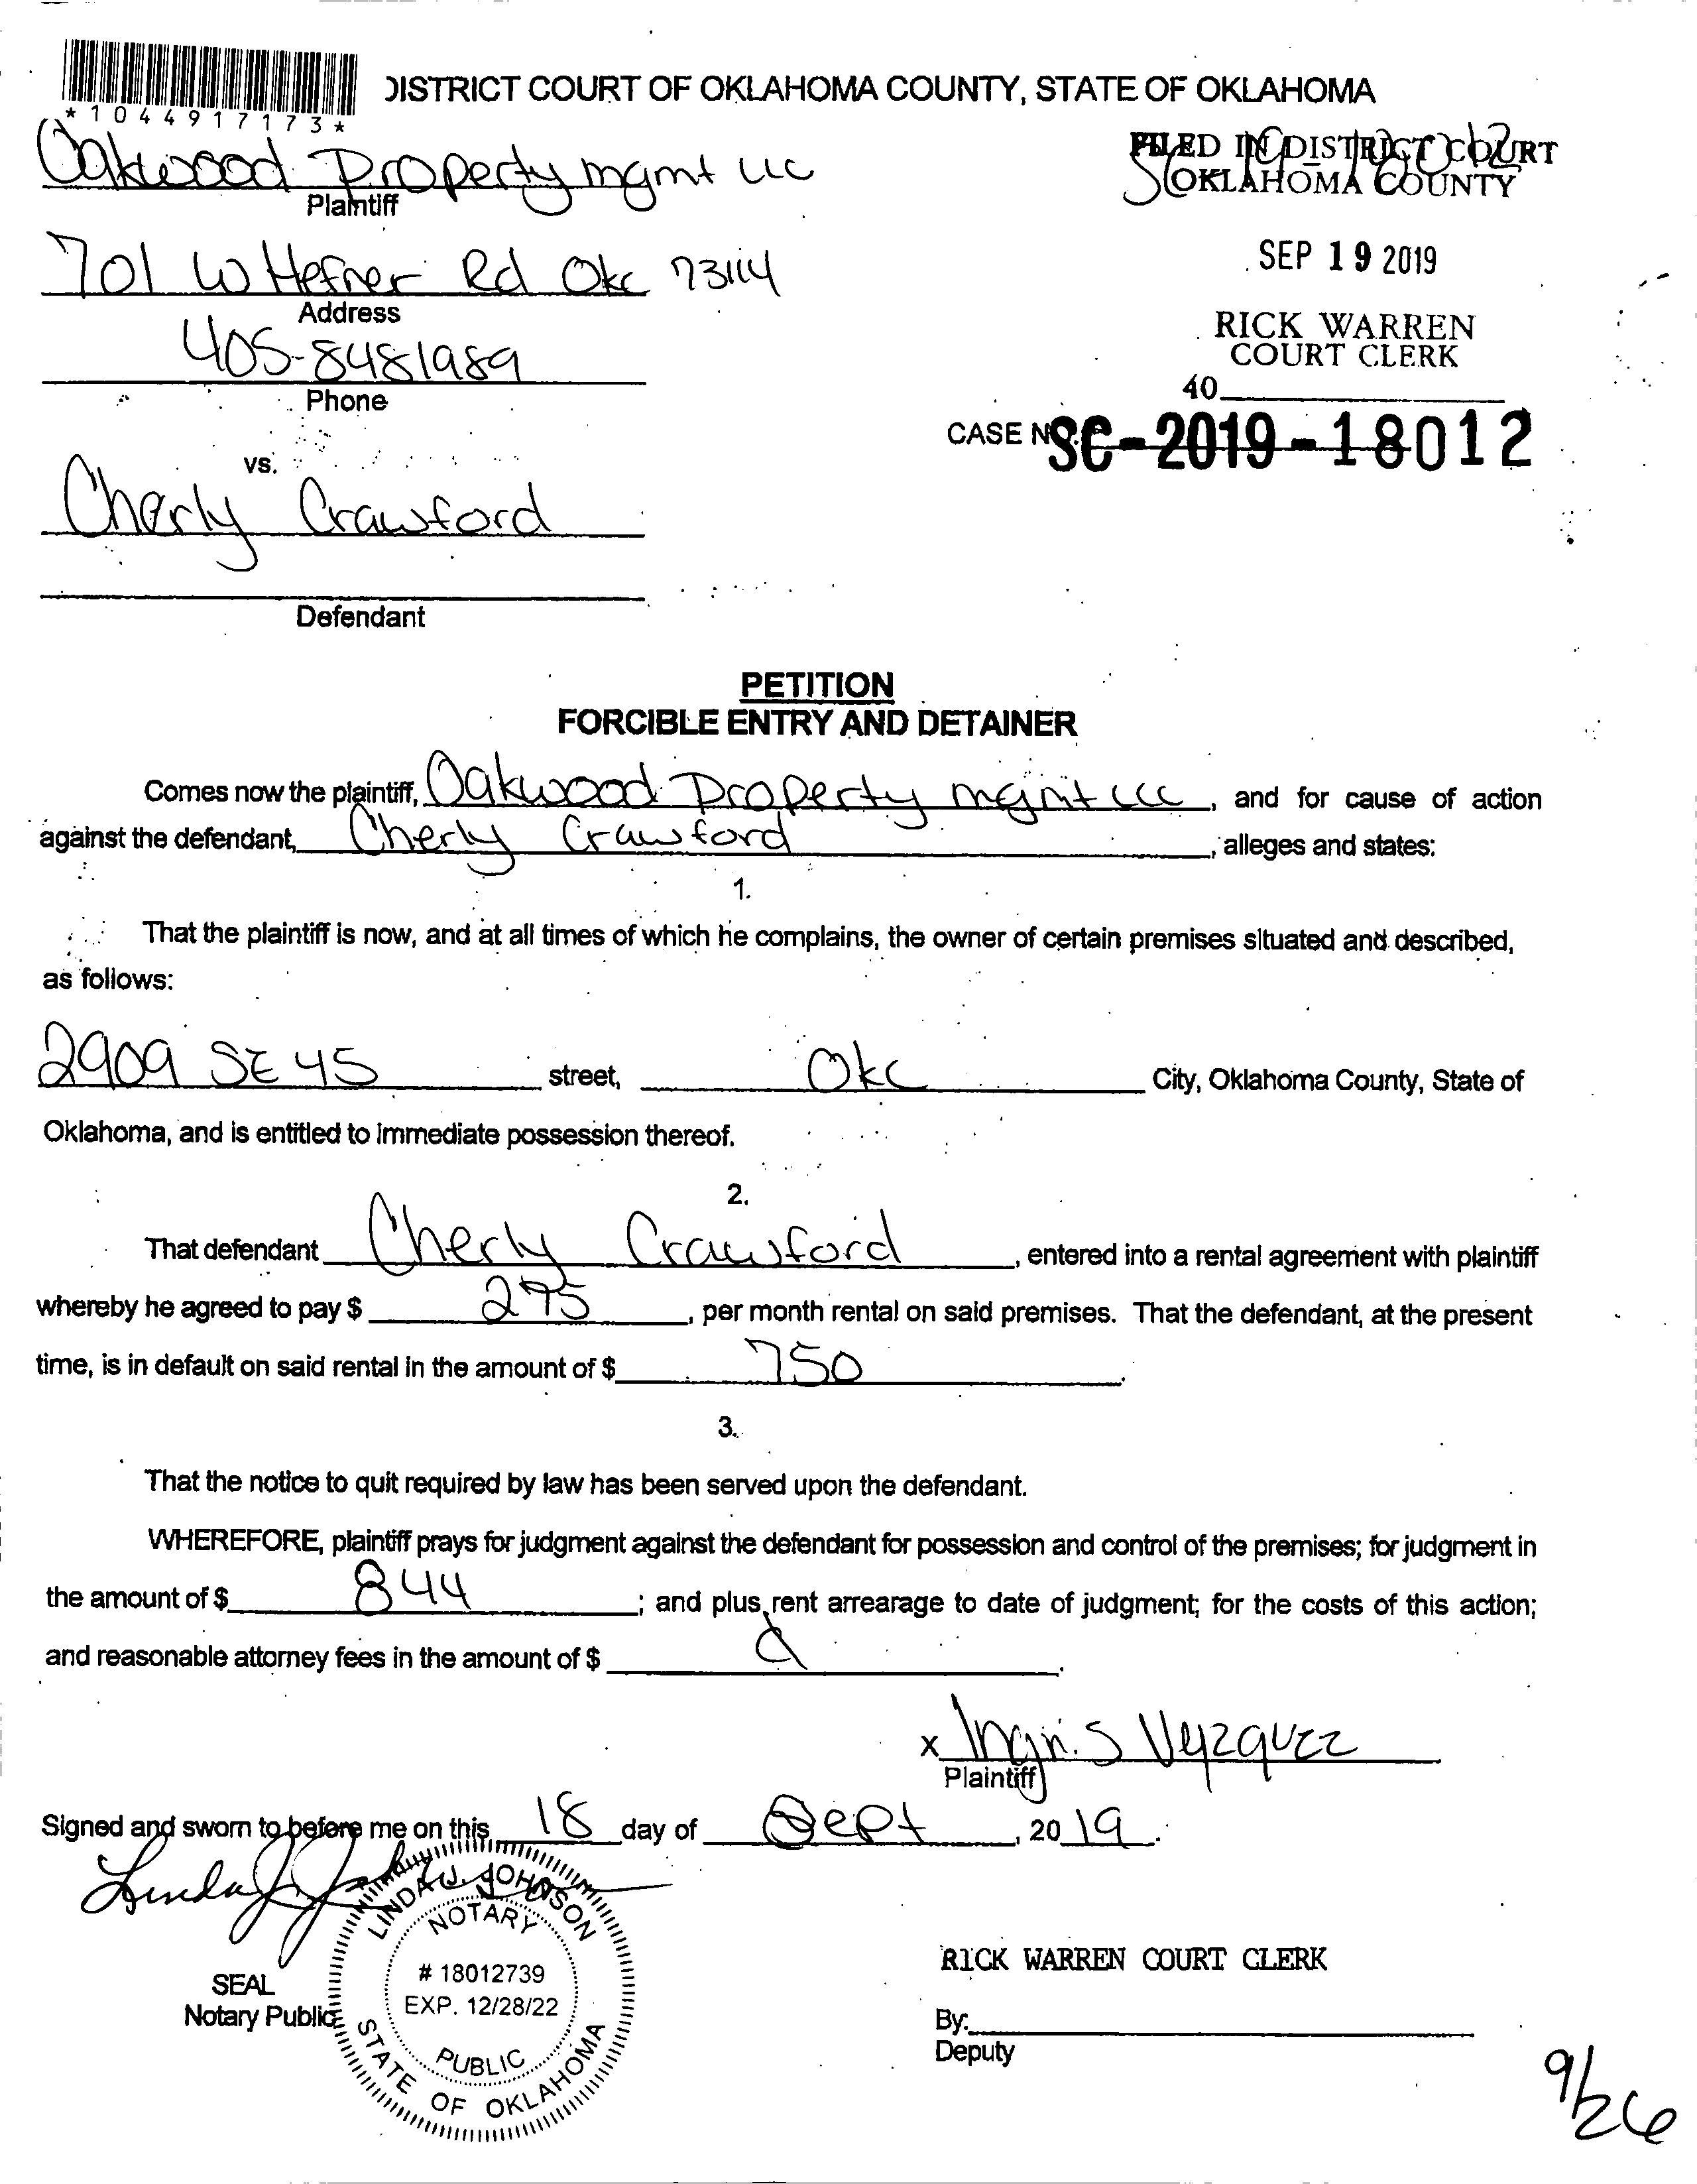 *1044917173*
DISTRICT COURT OF OKLAHOMA COUNTY, STATE OF OKLAHOMA
Oakwood Property mgmt LLC
Plaintiff
FILED IN DISTRICT COURT
OKLAHOMA COUNTY
SC 19-18012
701 W Hefner Rd Okc 73114
Address
SEP 19 2019
405-8481989
Phone
RICK WARREN
COURT CLERK
40
CASE NO. SC-2019-18012
vs.
Cherly Crawford
Defendant
PETITION
FORCIBLE ENTRY AND DETAINER
Comes now the plaintiff, Oakwood Property mgmt LLC, and for cause of action
against the defendant, Cherly Crawford, alleges and states:
1.
That the plaintiff is now, and at all times of which he complains, the owner of certain premises situated and described,
as follows:
2909 SE 45 street, Okc City, Oklahoma County, State of
Oklahoma, and is entitled to immediate possession thereof.
2.
That defendant Cherly Crawford, entered into a rental agreement with plaintiff
whereby he agreed to pay $ 295, per month rental on said premises. That the defendant, at the present
time, is in default on said rental in the amount of $ 750.
3.
That the notice to quit required by law has been served upon the defendant.
WHEREFORE, plaintiff prays for judgment against the defendant for possession and control of the premises; for judgment in
the amount of $ 844; and plus rent arrearage to date of judgment; for the costs of this action;
and reasonable attorney fees in the amount of $
x Ingri.S
Plaintiff
Signed and sworn to before me on this 18 day of Sept, 2019.
Linda J Johnson
LINDA J. JOHNSON
NOTARY
# 18012739
EXP. 12/28/22
PUBLIC
STATE OF OKLAHOMA
SEAL
Notary Public
RICK WARREN COURT CLERK
By:
Deputy
9/26